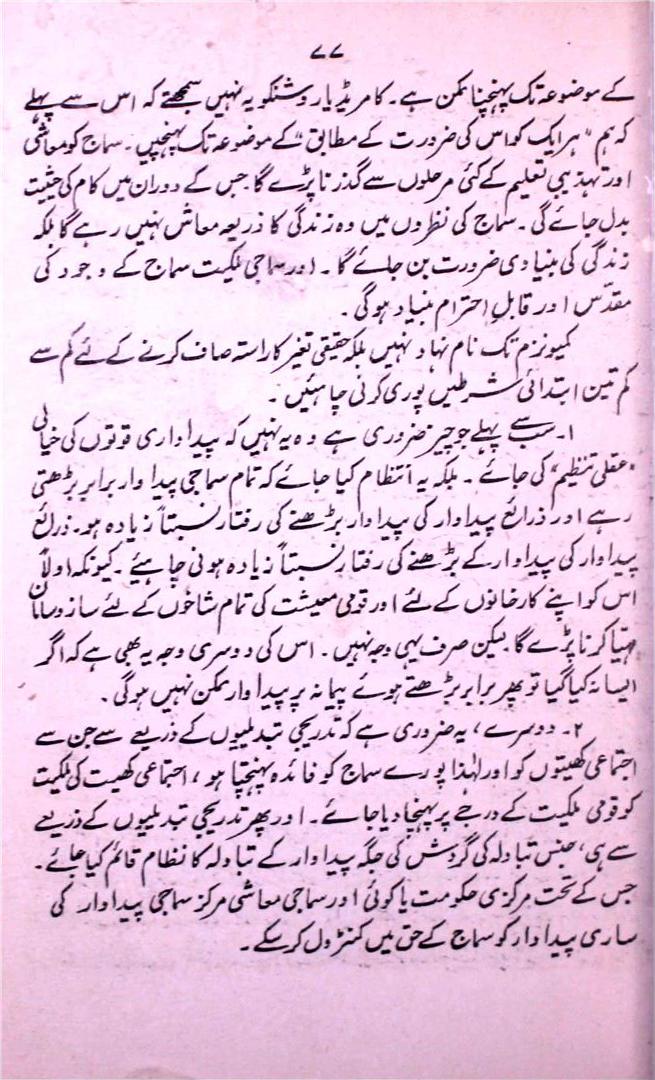 ۷۷
کے موضوعہ تک پہنچنا ممکن ہے۔ کامریڈ یاروشنکو یہ نہیں سمجھتے کہ اس سے پہلے
کہ ہم "ہر ایک کو اس کی ضرورت کے مطابق" کے موضوعہ تک پہنچیں۔ سماج کو معاشی
اور تہذیبی تعلیم کے کئی مرحلوں سے گذرنا پڑے گا جس کے دوران میں کام کی حیثیت
بدل جائے گی۔ سماج کی نظروں میں وہ زندگی کا ذریعہ معاش نہیں رہے گا بلکہ
زندگی کی بنیادی ضرورت بن جائے گا۔ اور سماجی ملکیت سماج کے وجود کی
مقدّس اور قابلِ احترام بنیاد ہوگی۔
کمیونزم تک نام نہاد نہیں بلکہ حقیقی تغیر کا راستہ صاف کرنے کے لئے کم سے
کم تین ابتدائی شرطیں پوری کرنی چاہئیں۔
۱۔ سب سے پہلے جو چیز ضروری ہے وہ یہ نہیں کہ پیداواری قوتوں کی خیالی
"عقلی تنظیم" کی جائے۔ بلکہ یہ انتظام کیا جائے کہ تمام سماجی پیداوار برابر بڑھتی
رہے اور ذرائع پیداوار کی پیداوار بڑھنے کی رفتار نسبتاً زیادہ ہو۔ ذرائع
پیداوار کی پیداوار کے بڑھنے کی رفتار نسبتاً زیادہ ہونی چاہیئے۔ کیونکہ اولاً
اس کو اپنے کارخانوں کے لئے اور قومی معیشت کی تمام شاخوں کے لئے ساز و سامان
مہیّا کرنا پڑے گا لیکن صرف یہی وجہ نہیں۔ اس کی دوسری وجہ یہ بھی ہے کہ اگر
ایسا نہ کیا گیا تو پھر برابر بڑھتے ہوئے پیمانہ پر پیداوار ممکن نہیں ہوگی۔
۲۔ دوسرے، یہ ضروری ہے کہ تدریجی تبدیلیوں کے ذریعے سے جن سے
اجتماعی کھیتوں کو اور لہٰذا پورے سماج کو فائدہ پہنچتا ہو، اجتماعی کھیت کی ملکیت
کو قومی ملکیت کے درجے پر پہنچا دیا جائے۔ اور پھر تدریجی تبدیلیوں کے ذریعے
سے ہی، جنس تبادلہ کی گردش کی جگہ پیداوار کے تبادلہ کا نظام قائم کیا جائے۔
جس کے تحت مرکزی حکومت یا کوئی اور سماجی معاشی مرکز سماجی پیداوار کی
ساری پیداوار کو سماج کے حق میں کنٹرول کر سکے۔